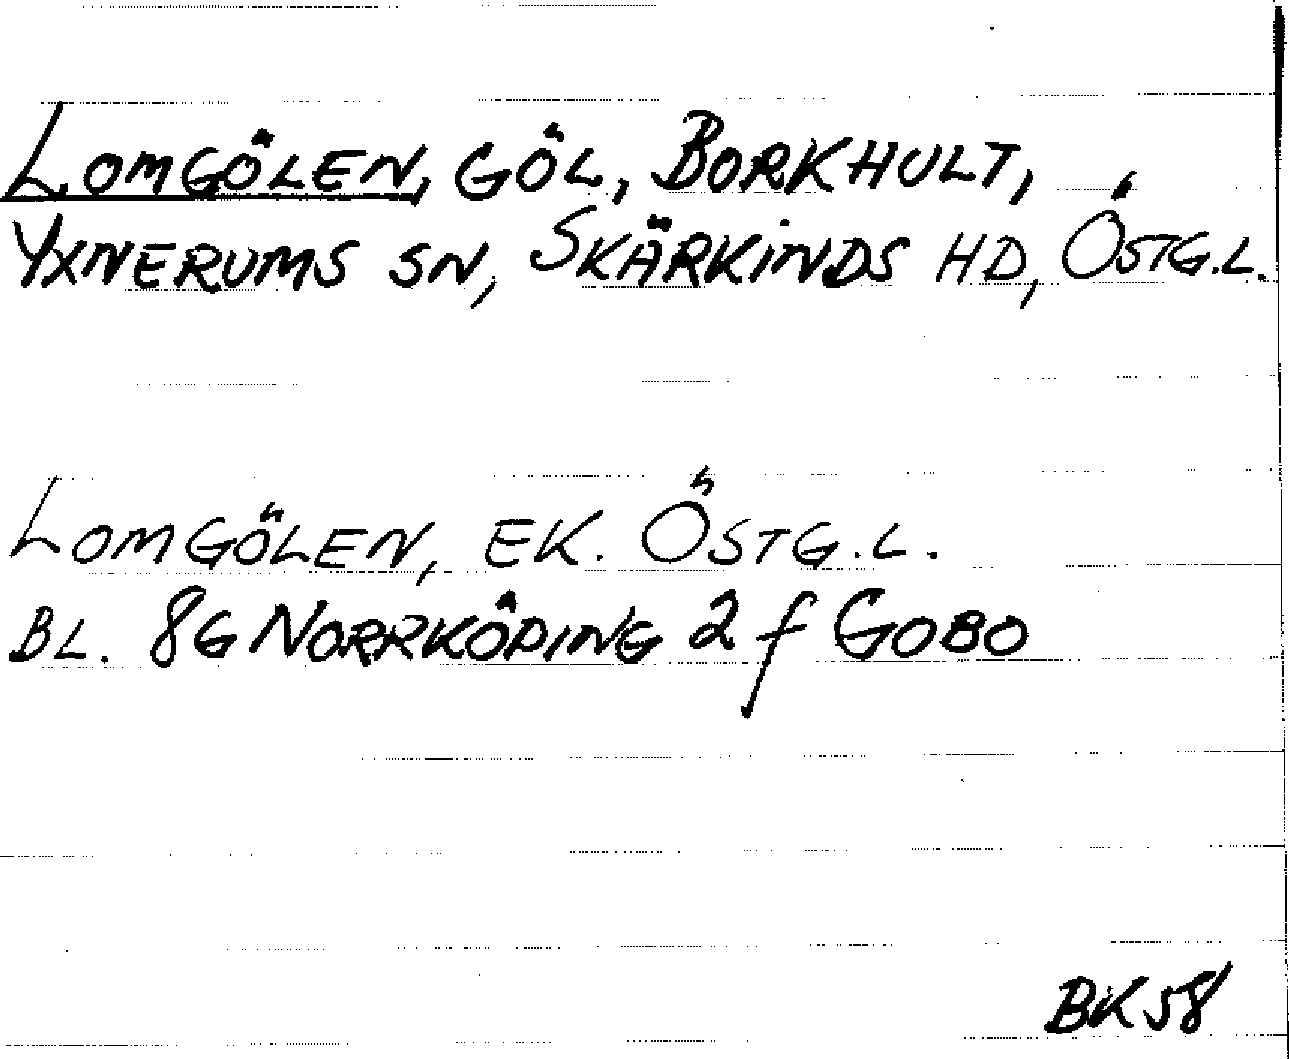 LOMGÖLEN, GÖL, BORKHULT,
YXNERUMS SN, SKÄRKINDS HD, ÖSTG.L.
LOMGÖLEN, EK. ÖSTG.L.
BL. 8G NORRKÖPING 2 f GOBO
BK 58